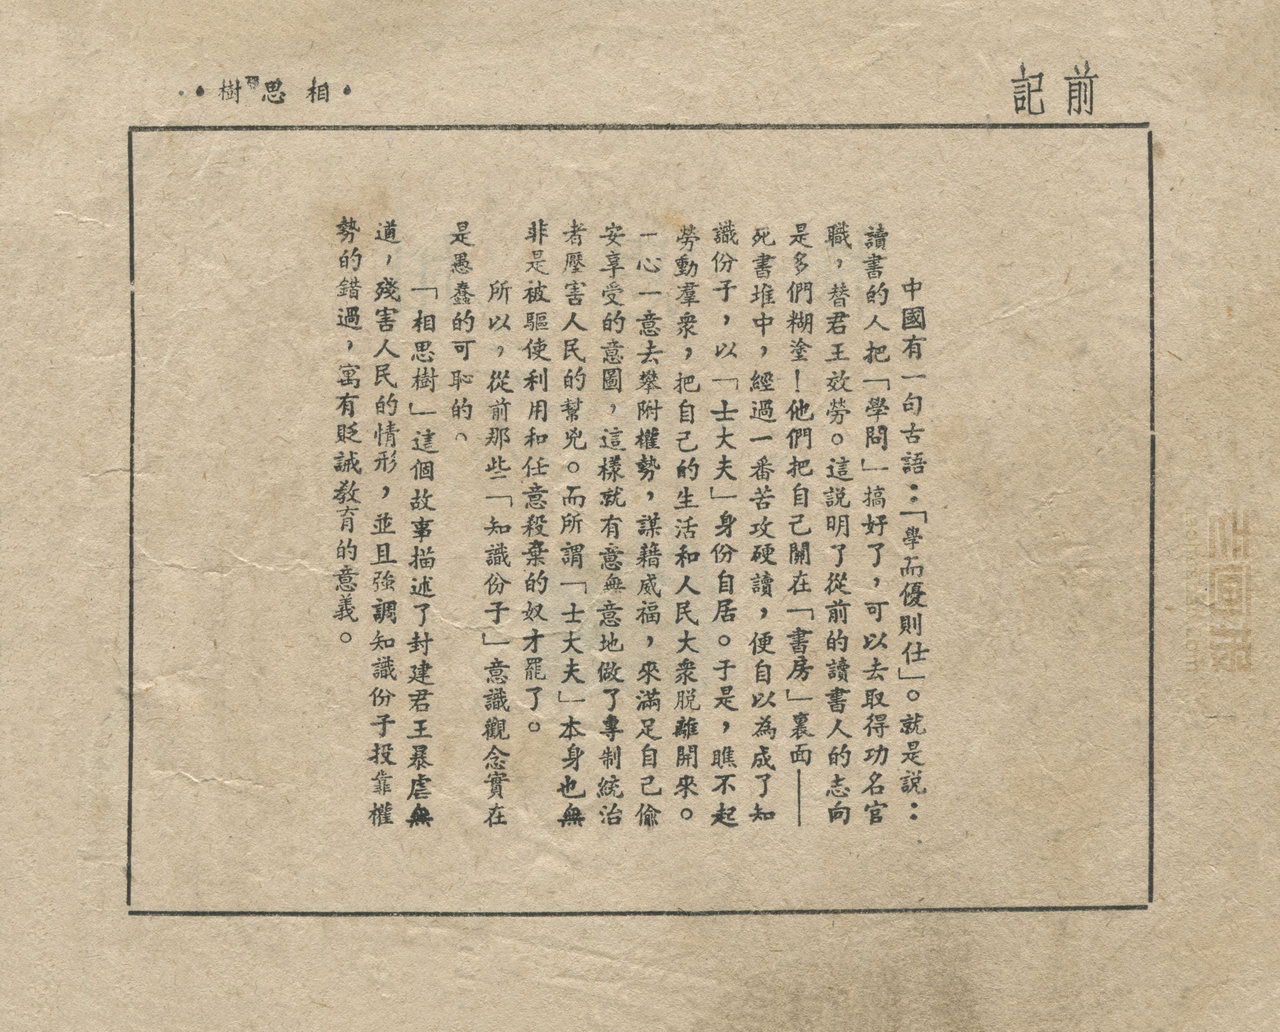 前記
·相思樹·
中國有一句古語：「學而優則仕」。就是説：
讀書的人把「學問」搞好了，可以去取得功名官
職，替君王效勞。這説明了從前的讀書人的志向
是多們糊塗！他們把自己關在「書房」裏面——
死書堆中，經過一番苦攻硬讀，便自以為成了知
識份子，以「士大夫」身份自居。于是，瞧不起
勞動羣衆，把自己的生活和人民大衆脱離開來。
一心一意去攀附權勢，謀藉威福，來滿足自己偷
安享受的意圖，這樣就有意無意地做了專制統治
者壓害人民的幫兇。而所謂「士大夫」本身也無
非是被驅使利用和任意殺棄的奴才罷了。
所以，從前那些「知識份子」意識觀念實在
是愚蠢的可恥的。
「相思樹」這個故事描述了封建君王暴虐無
道，殘害人民的情形，並且強調知識份子投靠權
勢的錯過，寓有貶誡教育的意義。